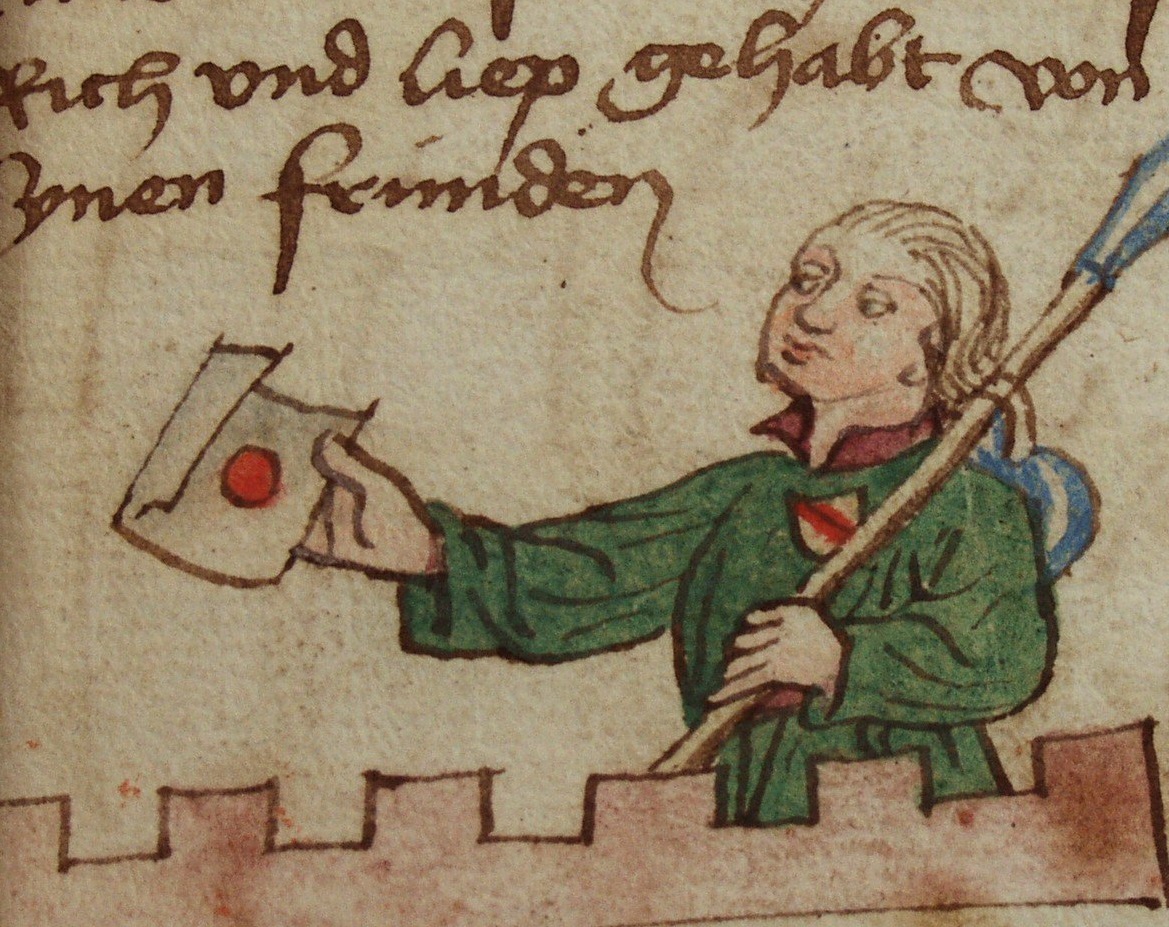 Rich vnd liep gehabt von
synen frúnden